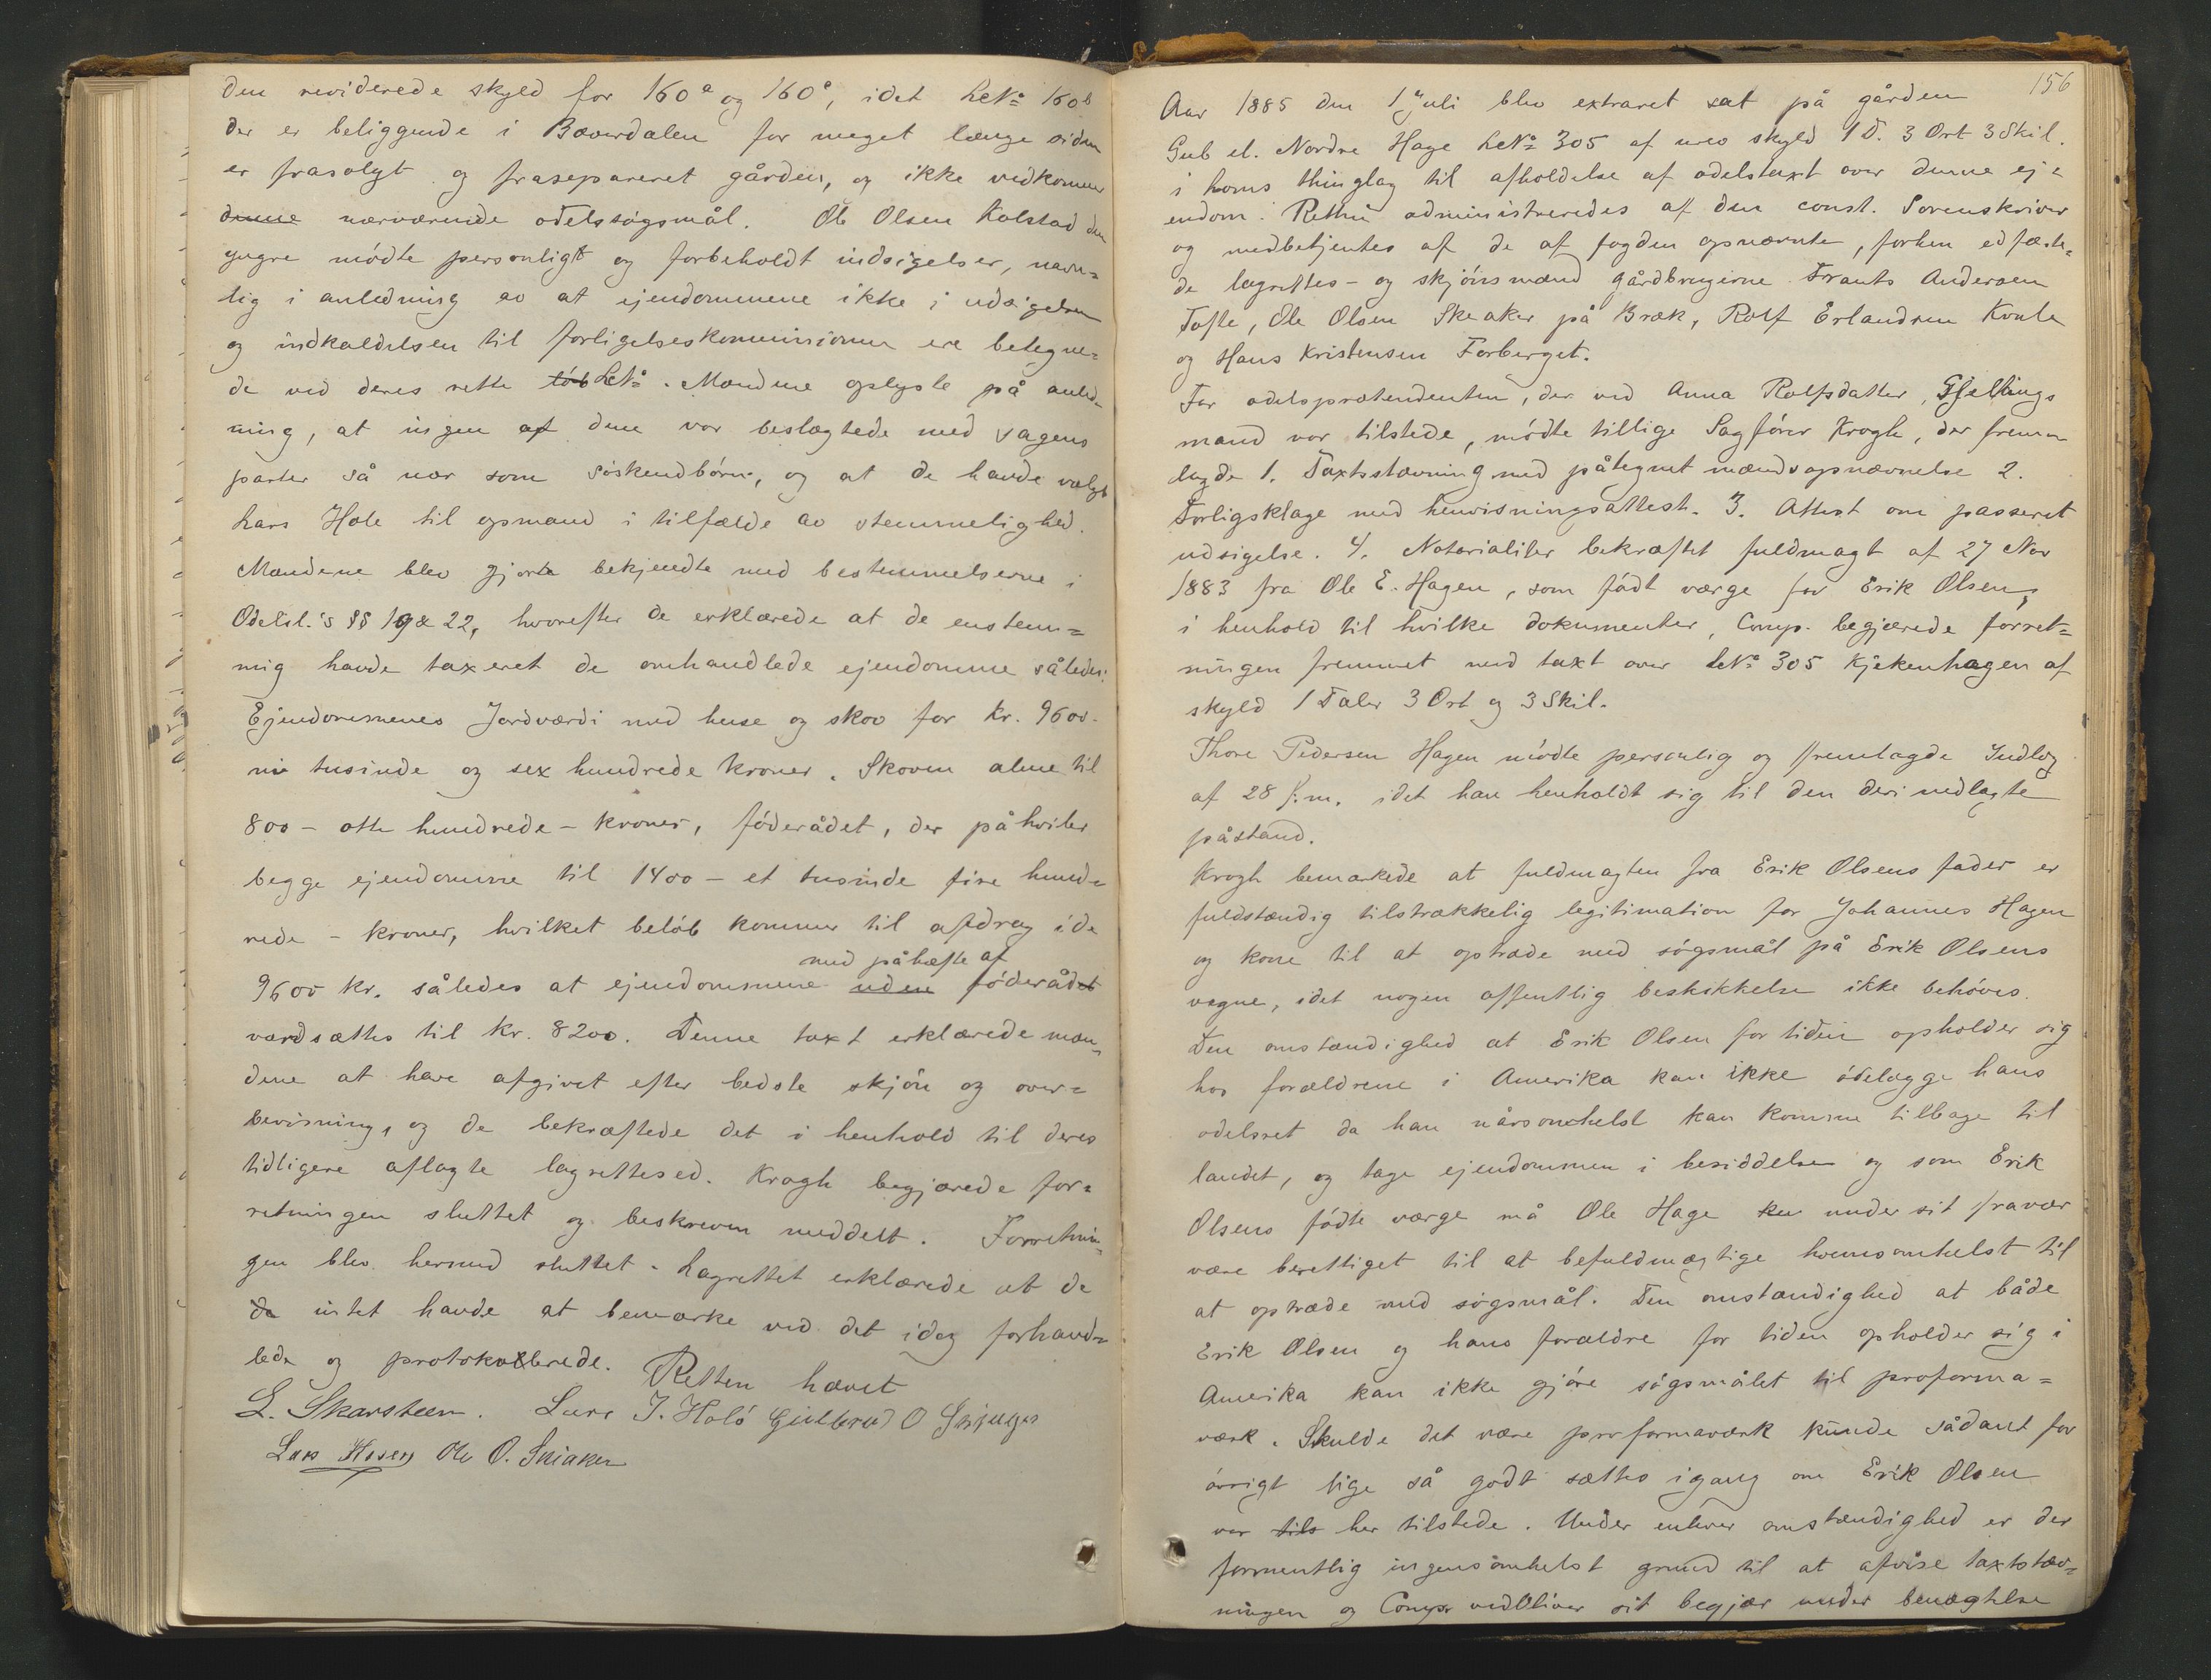 den reviderede skyld for 160a og 160c, idet LNo 160b
der er beliggende i Bæverdalen for meget længe siden
er frasolgt og frasepareret gården, og ikke vedkommer
denne nærværende odelssøgsmål. Ole Olsen Kolstad den
yngre mödte personligt og forbeholdt indsigelser, navn=
lig i anledning av at ejendommene ikke i udsigelsen
og indkaldelsen til forligelseskommissionen ere betegne=
de ved deres rette löb LNo. Mændene oplyste på anled=
ning, at ingen af dem var beslægtede med sagens
parter så nær som söskendbörn, og at de havde valgt
Lars Hole til opmand i tilfælde av stemmelighed.
Mændene blev gjorte bekjendte med bestemmelserne i
Odelsl.'s §§ 19 & 22, hvorefter de erklærede at de enstem=
mig havde taxeret de omhandlede ejendomme således:
Ejendommenes Jordværdi med huse og skov for Kr. 9600-
ni tusinde og sex hundrede kroner. Skoven alene til
800 - otte hundrede - kroner, föderådet, der påhviler
begge ejendomme til 1400 - et tusinde fire hund=
rede - kroner, hvilket belöb kommer til afdrag i de
med påhæfte af
9600 kr. således at ejendommene uden föderådet
værdsættes til kr. 8200. Denne taxt erklærede mæn=
dene at have afgivet efter bedste skjön og over=
bevisning, og de bekræftede det i henhold til deres
tidligere aflagte lagrettesed. Krogh begjærede for=
retningen sluttet og beskreven meddelt. Forretnin=
gen blev hermed sluttet. Lagrettet erklærede at de
da intet havde at bemærke ved det idag forhand=
lede og protokollerede. Retten hævet
L. Skarsteen. Lars J. Holö Gulbrand O
Lars Ole O. Skiaker
156
Aar 1885 den 1 Juli blev extraret sat på gården
Gub el. Nordre Hage LNo 305 af urev skyld 1 D. 3 Ort 3 Skil.
i Loms thinglag til afholdelse af odelstaxt over denne ej=
endom. Retten administreredes af den const. Sorenskriver
og medbetjentes af de af fogden opnævnte, forhen edfæste=
de lagrettes- og skjönsmænd gårdbrugerne Frants Andersen
Tofte, Ole Olsen Skeaker på Bræk, Rolf Erlandsen Kvale
og Hans Kristensen Forberget.
For odelsprætendenten, der ved Anna Rolfsdatter, Gjeltings
mand var tilstede, mödte tillige Sagförer Krogh, der frem=
lagde 1. Taxtstævning med påtegnet mændsopnævnelse 2.
Forligsklage med henvisningsattest. 3. Attest om passeret
udsigelse. 4. Notarialiter bekræftet fuldmagt af 27 Nov
1883 fra Ole E. Hagen, som födt værge for Erik Olsen,
i henhold til hvilke dokumenter, Comp. begjærede forret=
ningen fremmet med taxt over LNo 305 Kjekenhagen af
skyld 1 Daler 3 Ort og 3 Skil.
Thore Pedersen Hagen mödte personlig og fremlagde Indlæg
af 28 f.m. idet han henholdt sig til den deri nedlagte
påstand.
Krogh bemærkede at fuldmagten fra Erik Olsens fader er
fuldstændig tilstrækkelig legitimation for Johannes Hagen
og kone til at optræde med sögsmål på Erik Olsens
vegne, idet nogen offentlig beskikkelse ikke behöves.
Den omstændighed at Erik Olsen for tiden opholder sig
hos forældrene i Amerika kan ikke ödelægge hans
odelsret da han nårsomhelst kan komme tilbage til
landet, og tage ejendommen i besiddelse og som Erik
Olsens födte værge må Ole Hage kun under sit fravær
være berettiget til at befuldmægtige hvemsomhelst til
at optræde med sögsmål. Den omstændighed at både
Erik Olsen og hans forældre for tiden opholder sig i
Amerika kan ikke gjöre sögsmålet til proforma=
værk. Skulde det være proformaværk kunde sådant for
övrigt lige så godt sættes igang om Erik Olsen
var tils her tilstede. Under enhver omstændighed er der
formentlig ingensomhelst grund til at afvise taxtstæv=
ningen og Comp. vedbliver sit begjær under benægtelse